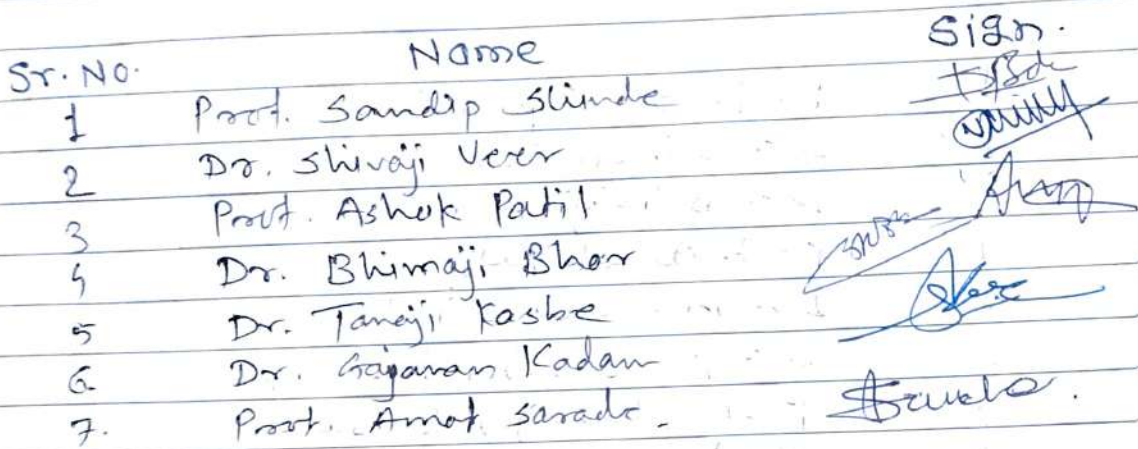 Sr. No. Name Sign.
1 Prof. Sandip Shinde
2 Dr. Shivaji Veer
3 Prof. Ashok Patil
4 Dr. Bhimaji Bhor
5 Dr. Tanaji Kasbe
6 Dr. Gajanan Kadam
7. Prof. Amol Sarade.